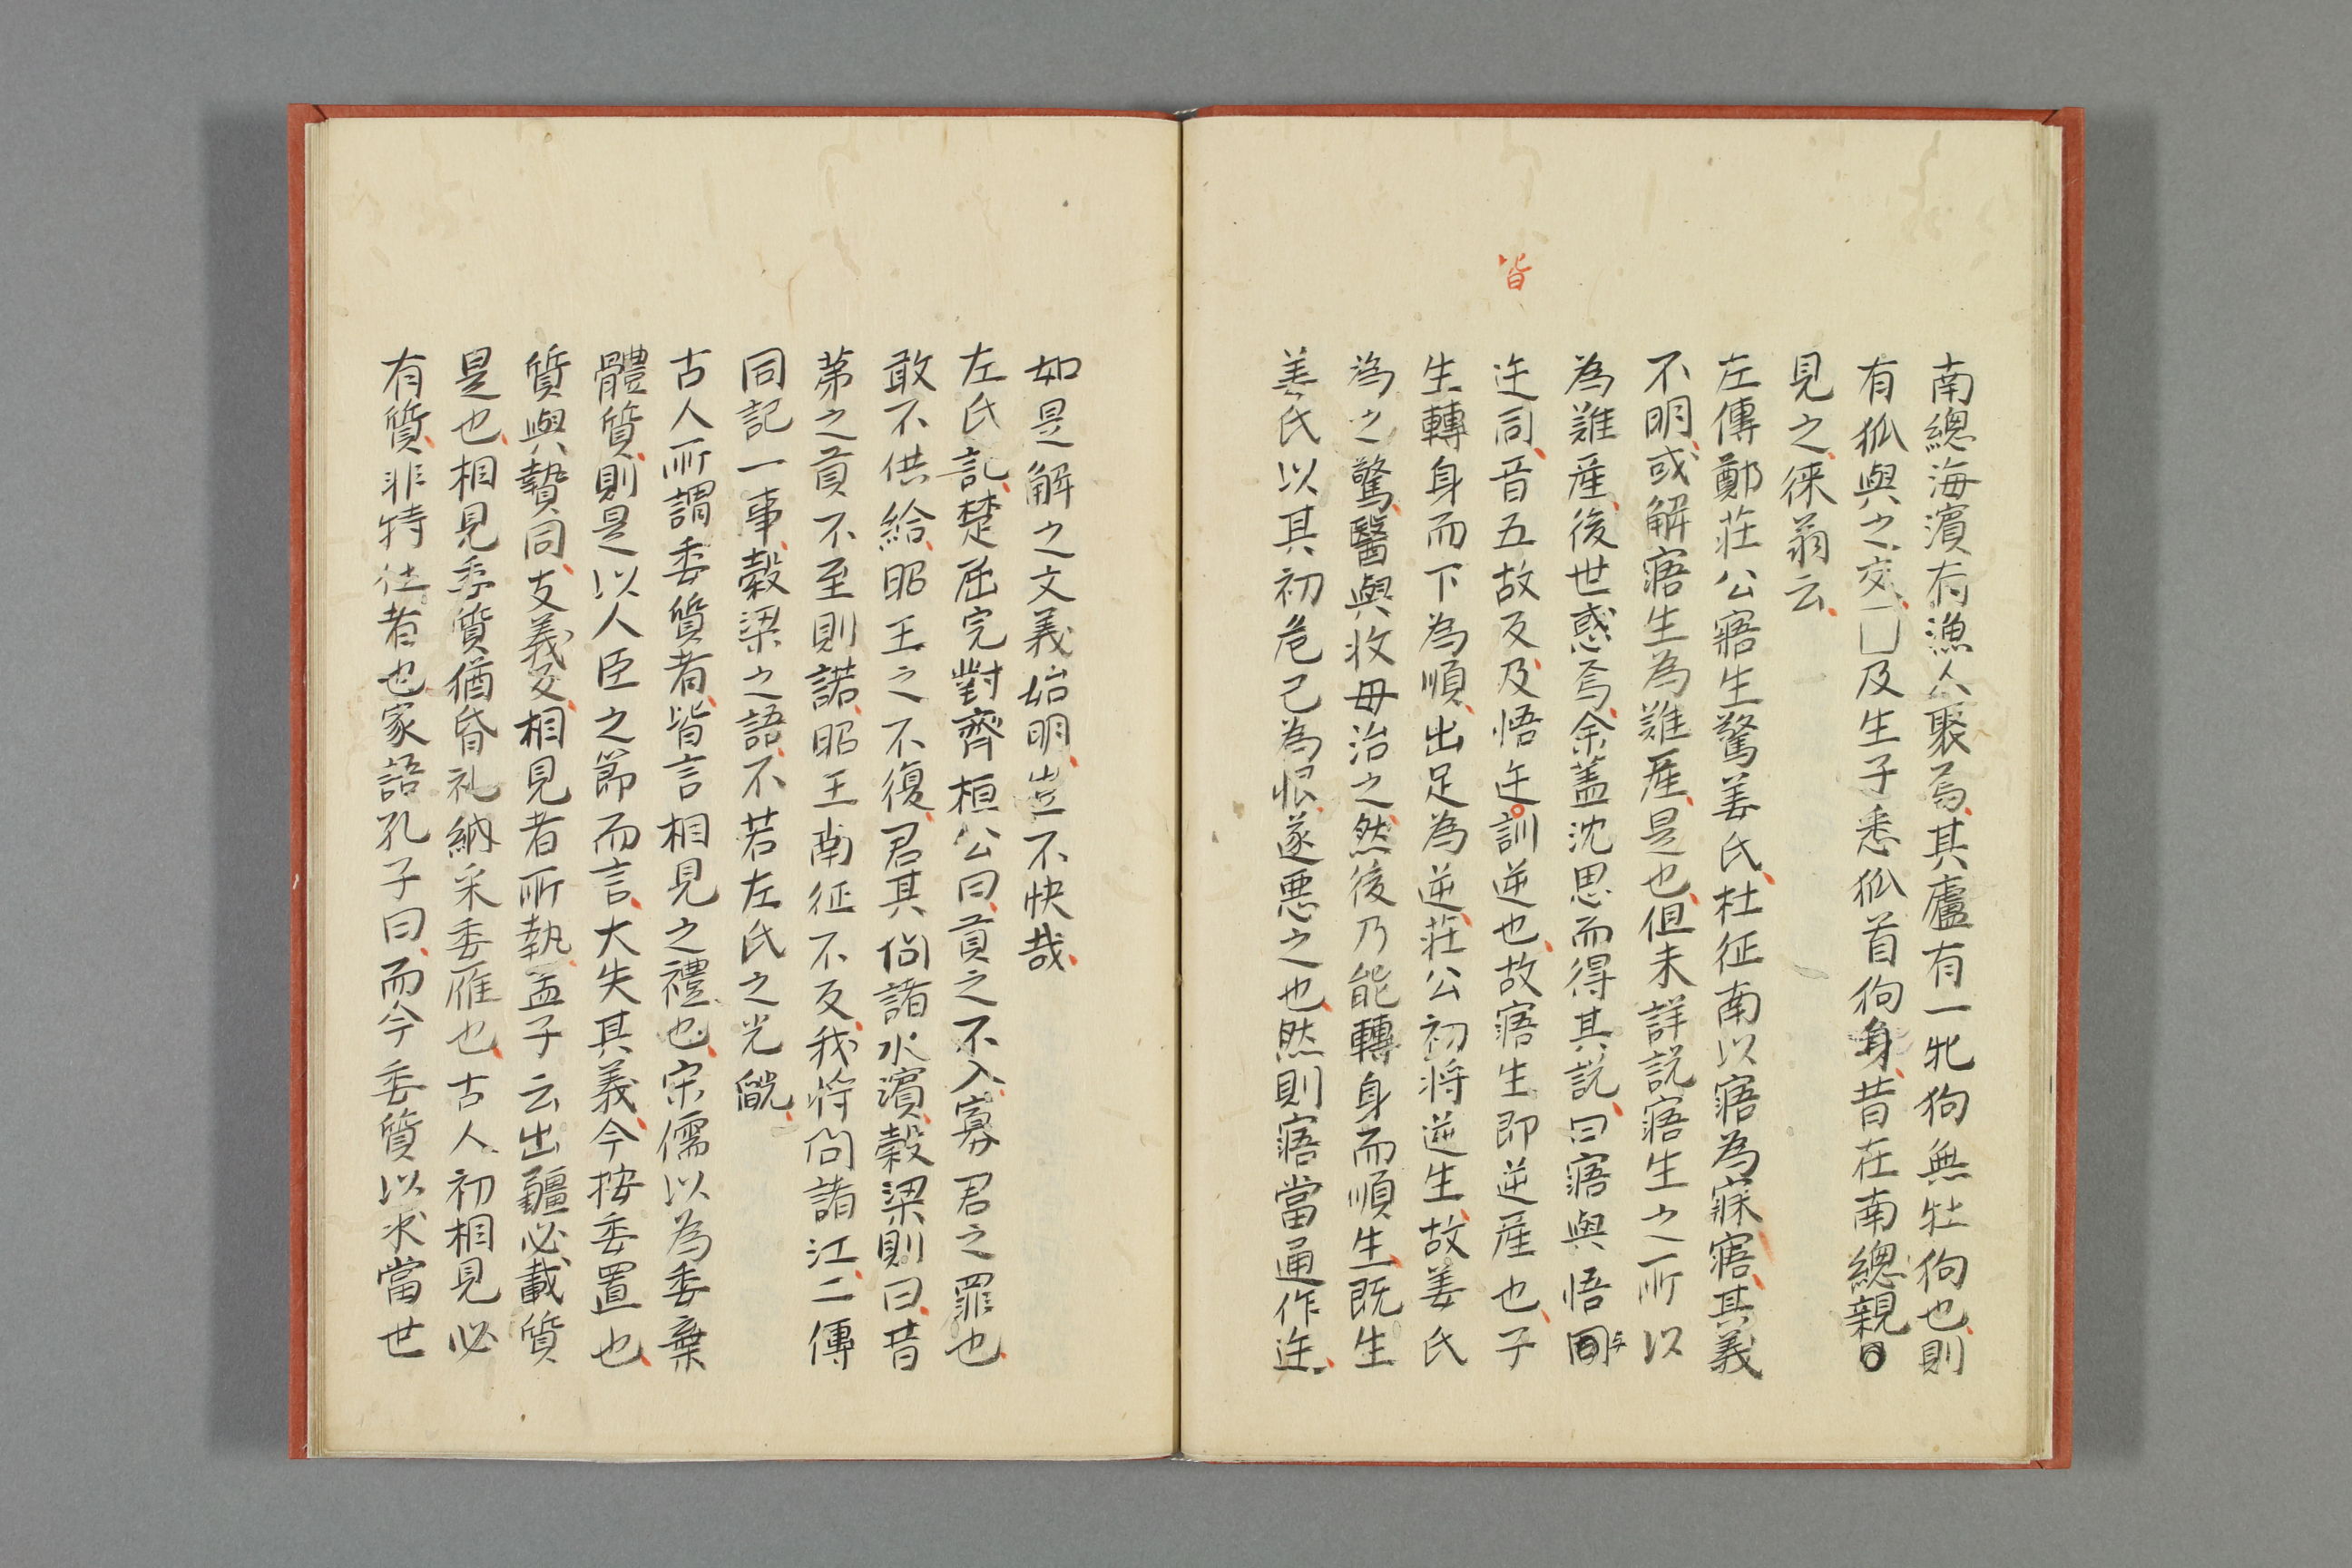 南總海濱有漁人聚焉其廬有一牝狗無牡狗也則
有狐與之交□及生子悉狐首狗身昔在南總親目
見之徠翁云
左傳鄭莊公寤生驚姜氏杜征南以寤為寐寤其義
不明或解寤生為難產是也但未詳説寤生之所以
為難產後世惑焉余蓋沈思而得其説曰寤與悟同与
迕同音五故反及悟迕訓逆也故寤生即逆產也子
皆
生轉身而下為順出足為逆莊公初将逆生故姜氏
為之驚醫與收毋治之然後乃能轉身而順生既生
姜氏以其初危己為恨遂悪之也然則寤當通作迕
如是解之文義始明豈不快哉
左氏記楚屈完對齊桓公曰貢之不入寡君之罪也
敢不供給昭王之不復君其問諸水濱穀梁則曰昔
茅之貢不至則諾昭王南征不反我将問諸江二傳
同記一事穀梁之語不若左氏之光
古人所謂委質者皆言相見之禮也宋儒以為委棄
體質則是以人臣之節而言大失其義今按委置也
質與贄同支義反相見者所執孟子云出疆必載質
是也相見委質猶昏礼納采委雁也古人初相見必
有質非特仕者也家語孔子曰而今委質以求當世